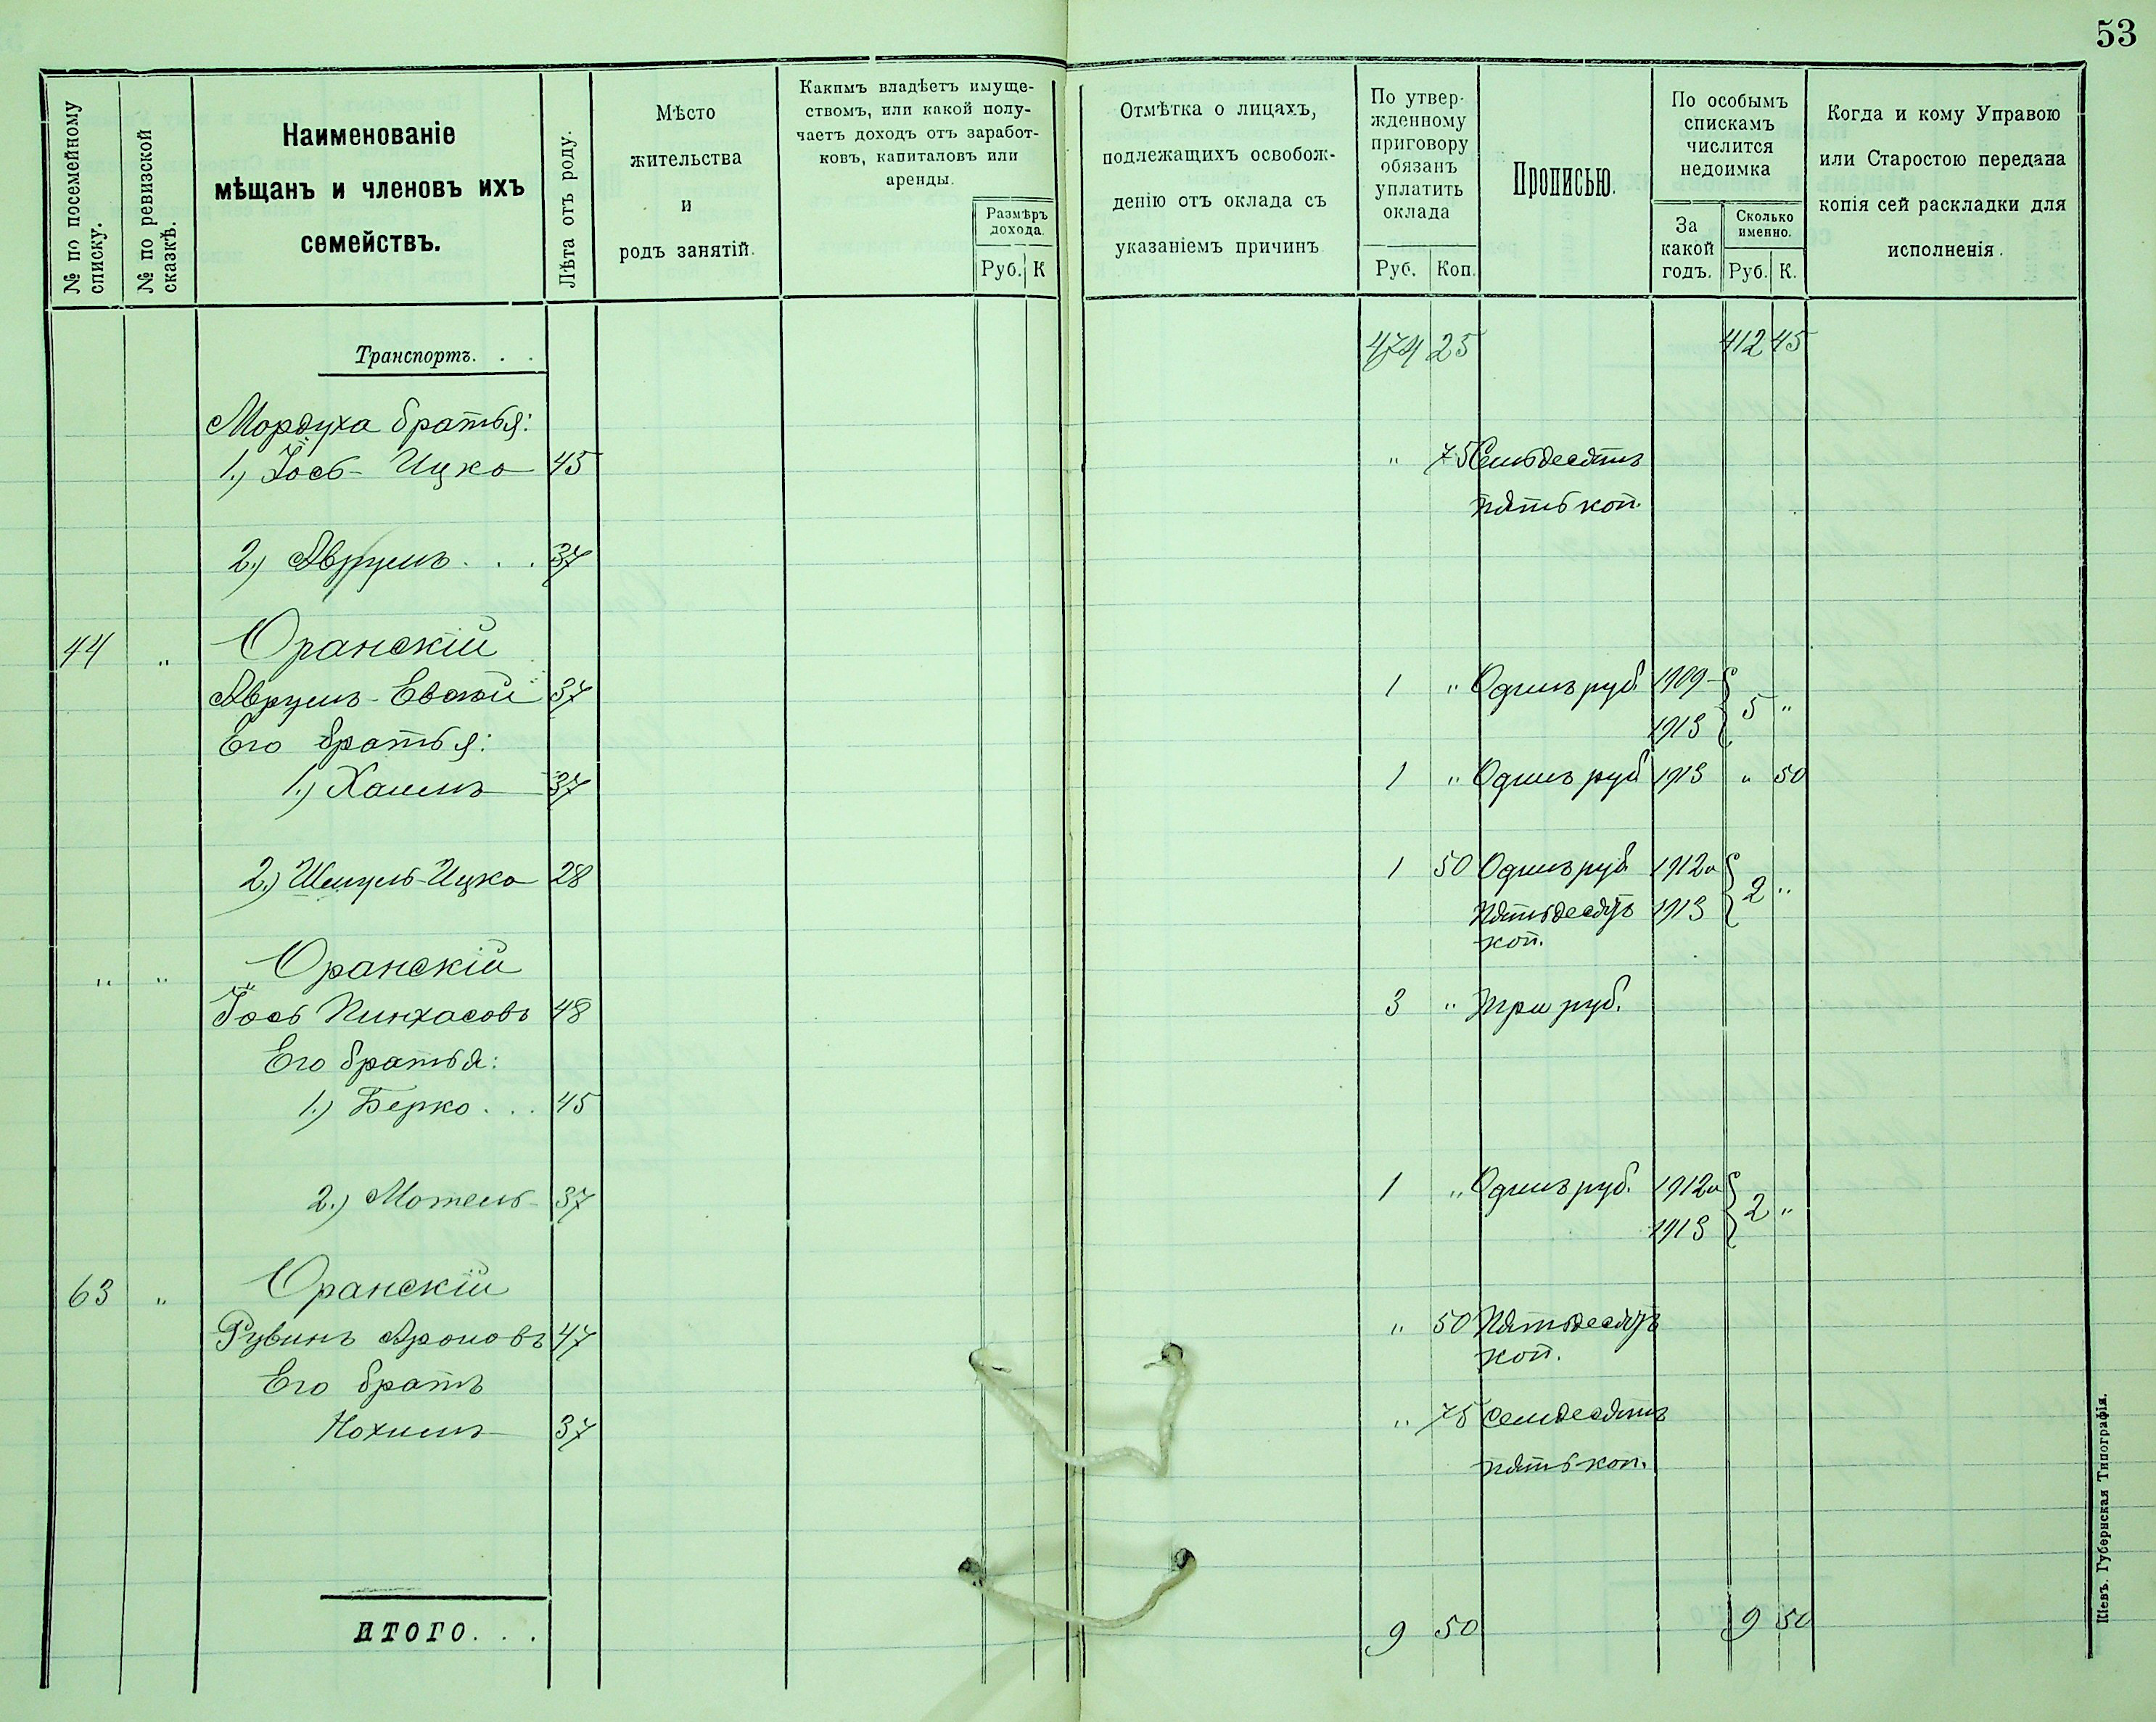 53
№ по посемейному
списку.
№ по ревизской
сказкѣ.
Наименованіе
мѣщанъ и членовъ ихъ
семействъ.
Лѣта отъ роду.
Мѣсто
жительства
и
родъ занятій.
Какимъ владѣетъ имуще-
ствомъ, или какой полу-
чаетъ доходъ отъ заработ-
ковъ, капиталовъ или
аренды.
Размѣръ
дохода.
Руб. К
Отмѣтка о лицахъ,
подлежащихъ освобож-
денію отъ оклада съ
указаніемъ причинъ
По утвер-
жденному
приговору
обязанъ
уплатить
оклада
Руб. Коп.
Прописью.
По особымъ
спискамъ
числится
недоимка
За
какой
годъ.
Сколько
именно.
Руб. К.
Когда и кому Управою
или Старостою передана
копія сей раскладки для
исполненія.
Транспортъ. . . 474 25 412 45
Мордуха братья:
1.) Іось-Ицко 45 " 75 Семьдесятъ
пять коп.
2.) Аврумъ . . . 37
44 " Оранскій
Аврумъ-Евсей 37 1 " Одинъ руб. 1909- 5 "
Его братья: 1913
1.) Хаимъ 37 1 " Одинъ руб 1913 " 50
2.) Шмуль-Ицко 28 1 50 Одинъ руб. 1912 и 2 "
Пятьдесятъ 1913
коп.
" " Оранскій
Іось Пинхасовъ 48 3 " Три руб.
Его братья:
1.) Берко . . . 45
2.) Мотель 37 1 " Одинъ руб. 1912 и 2 "
1913
63 " Оранскій
Рувинъ Ароновъ 47 " 50 Пятьдесятъ
коп.
Его братъ
Нохимъ 37 " 75 Семдесятъ
пять коп.
ИТОГО. . . 9 50 9 50
Кіевъ. Губернская Типографія.